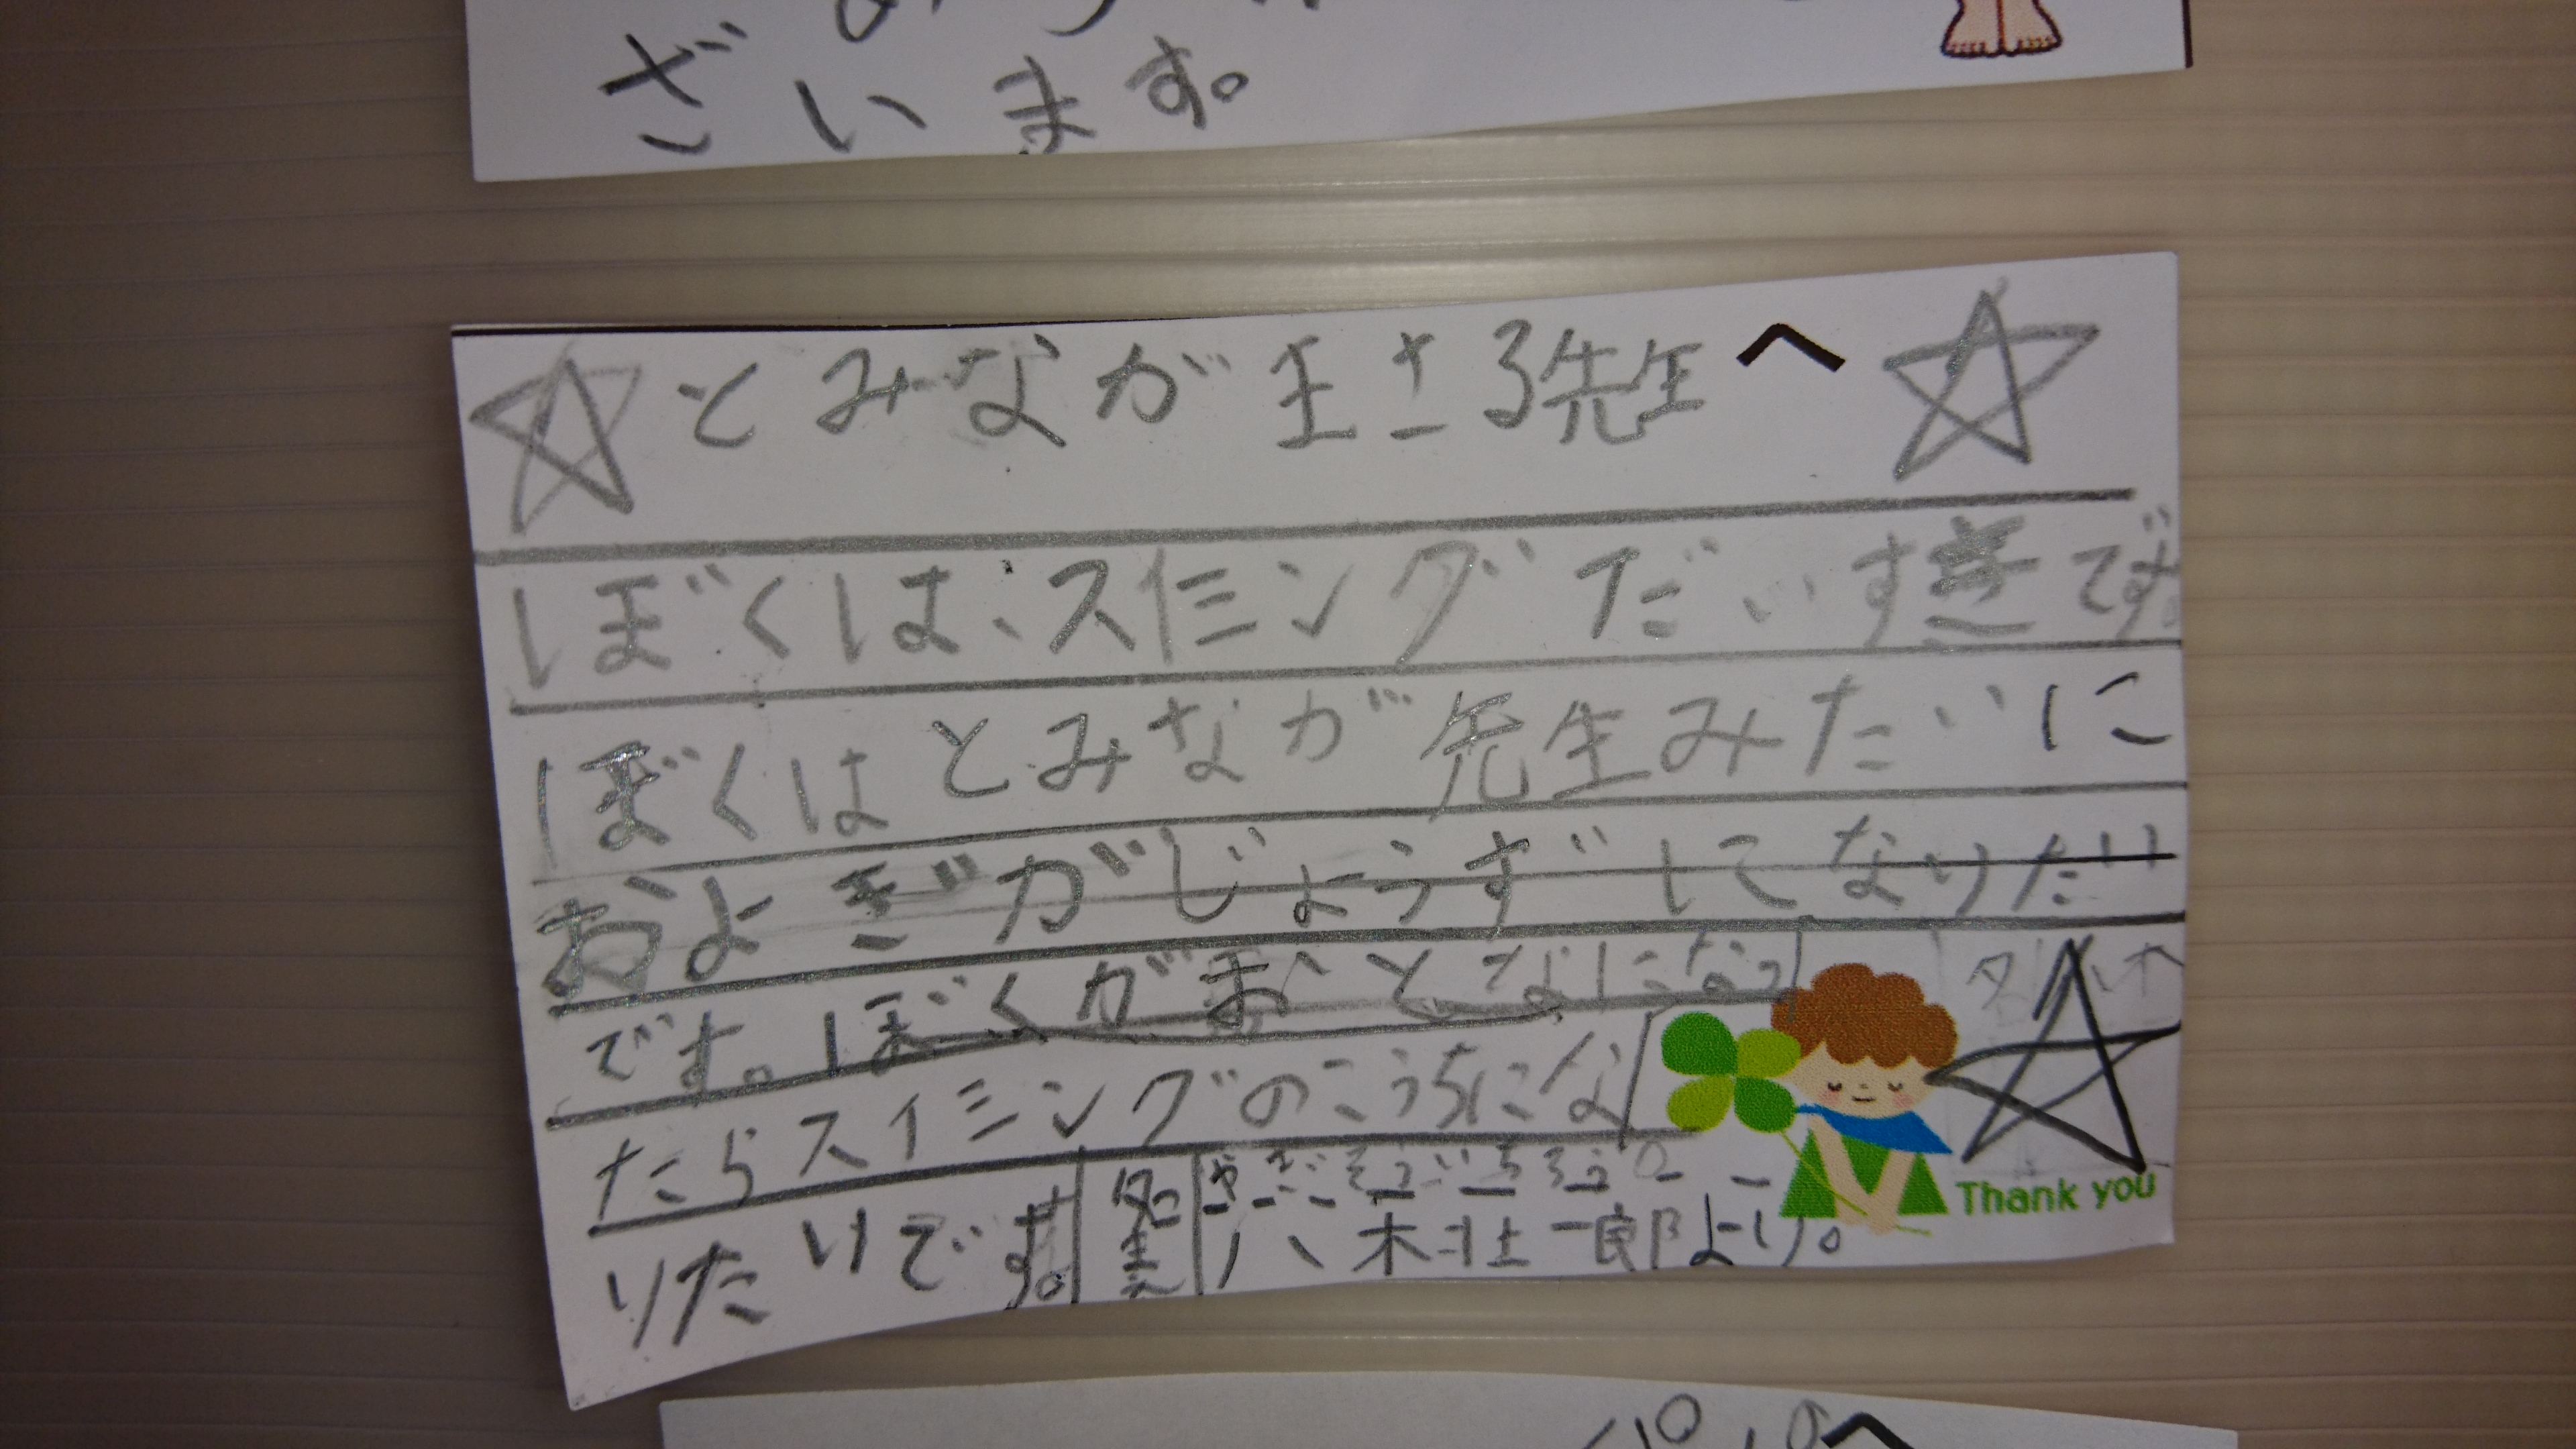 ざいます。
とみながまさる先生へ
ぼくは、スイミングだいすきです。
ぼくはとみなが先生みたいに
およぎがじょうずにてなりたい
です。ぼくがおとなになっ
たらスイミングのこうちにな
りたいです。
八木壮一郎より。
Thank you
へ